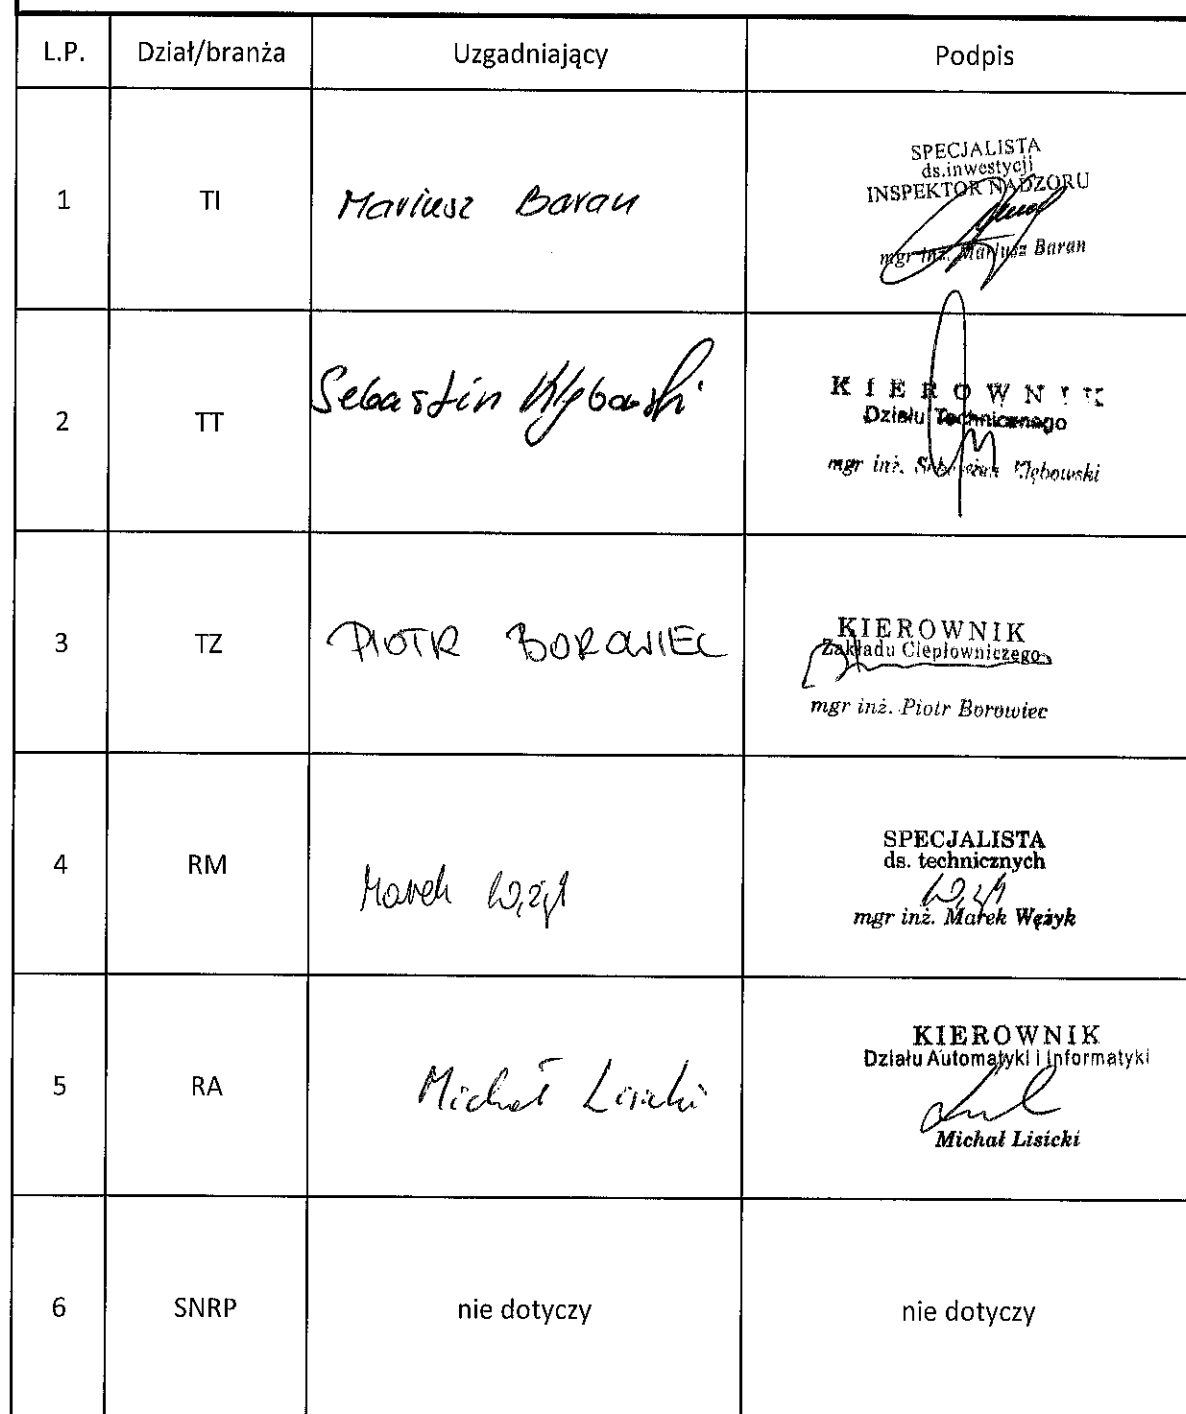 L.P. Dział/branża Uzgadniający Podpis
1 TI Mariusz Baran
SPECJALISTA
ds.inwestycji
INSPEKTOR NADZORU
mgr inż. Mariusz Baran
2 TT Sebastin Kłębowski
KIEROWNIK
Działu Technicznego
mgr inż. Sebastian Kłębowski
3 TZ PIOTR BOROWIEC
KIEROWNIK
Zakładu Ciepłowniczego
mgr inż. Piotr Borowiec
4 RM Marek Wężyk
SPECJALISTA
ds. technicznych
mgr inż. Marek Wężyk
5 RA Michał Lisicki
KIEROWNIK
Działu Automatyki i Informatyki
Michał Lisicki
6 SNRP nie dotyczy nie dotyczy